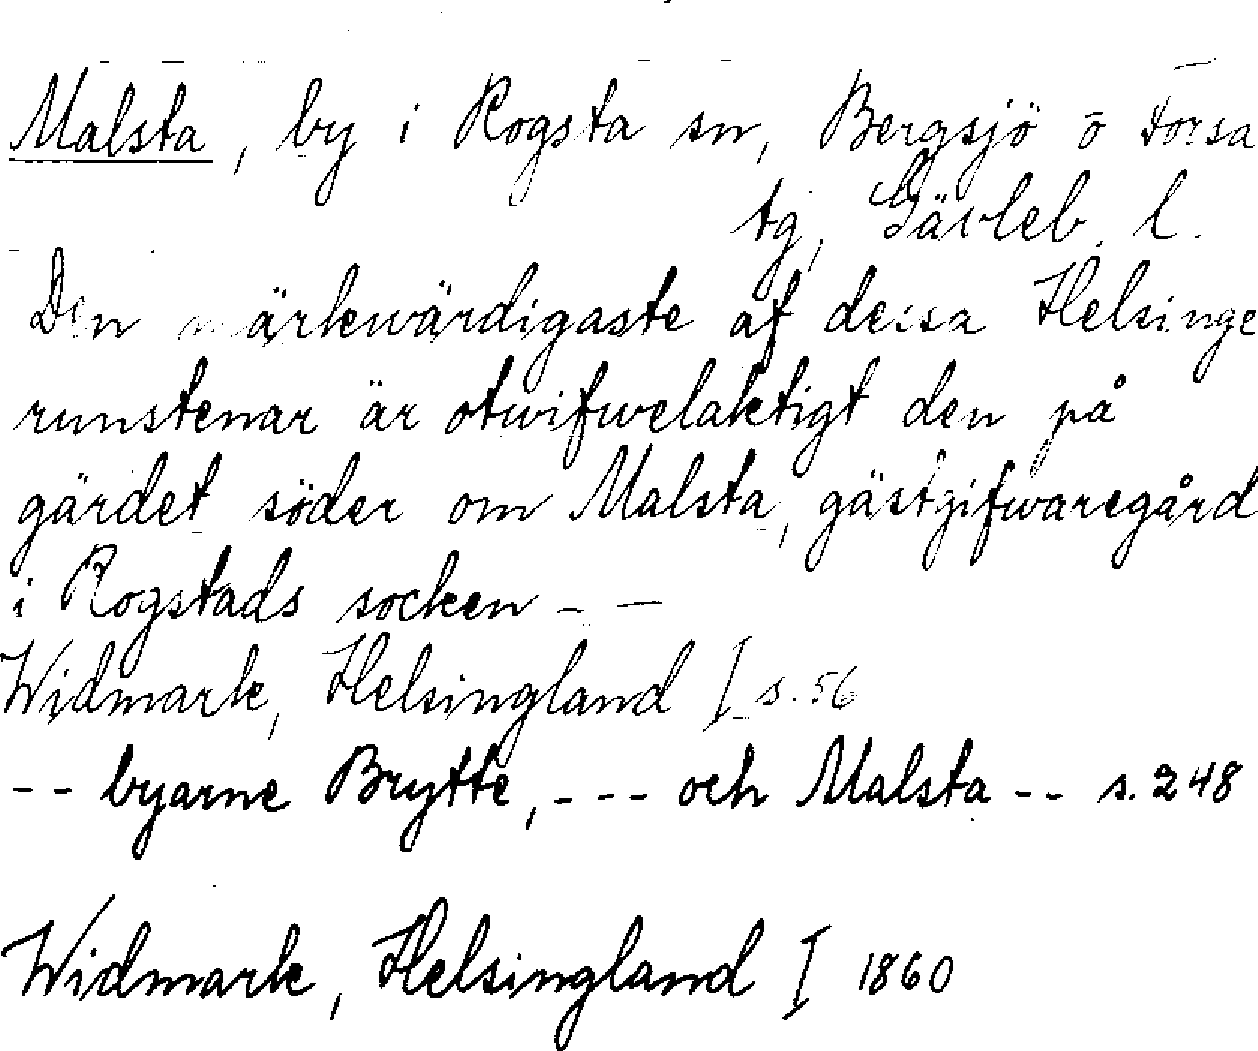 Malsta, by i Rogsta sn, Bergsjö o Forsa
tg, Gävleb. l.
Den märkwärdigaste af dessa Helsinge
runstenar är otwifwelaktigt den på
gärdet söder om Malsta, gästgifwaregård
i Rogstads socken - -
Widmark, Helsingland I s. 56
- - byarne Brytte, - - - och Malsta - - s. 248
Widmark, Helsingland I 1860